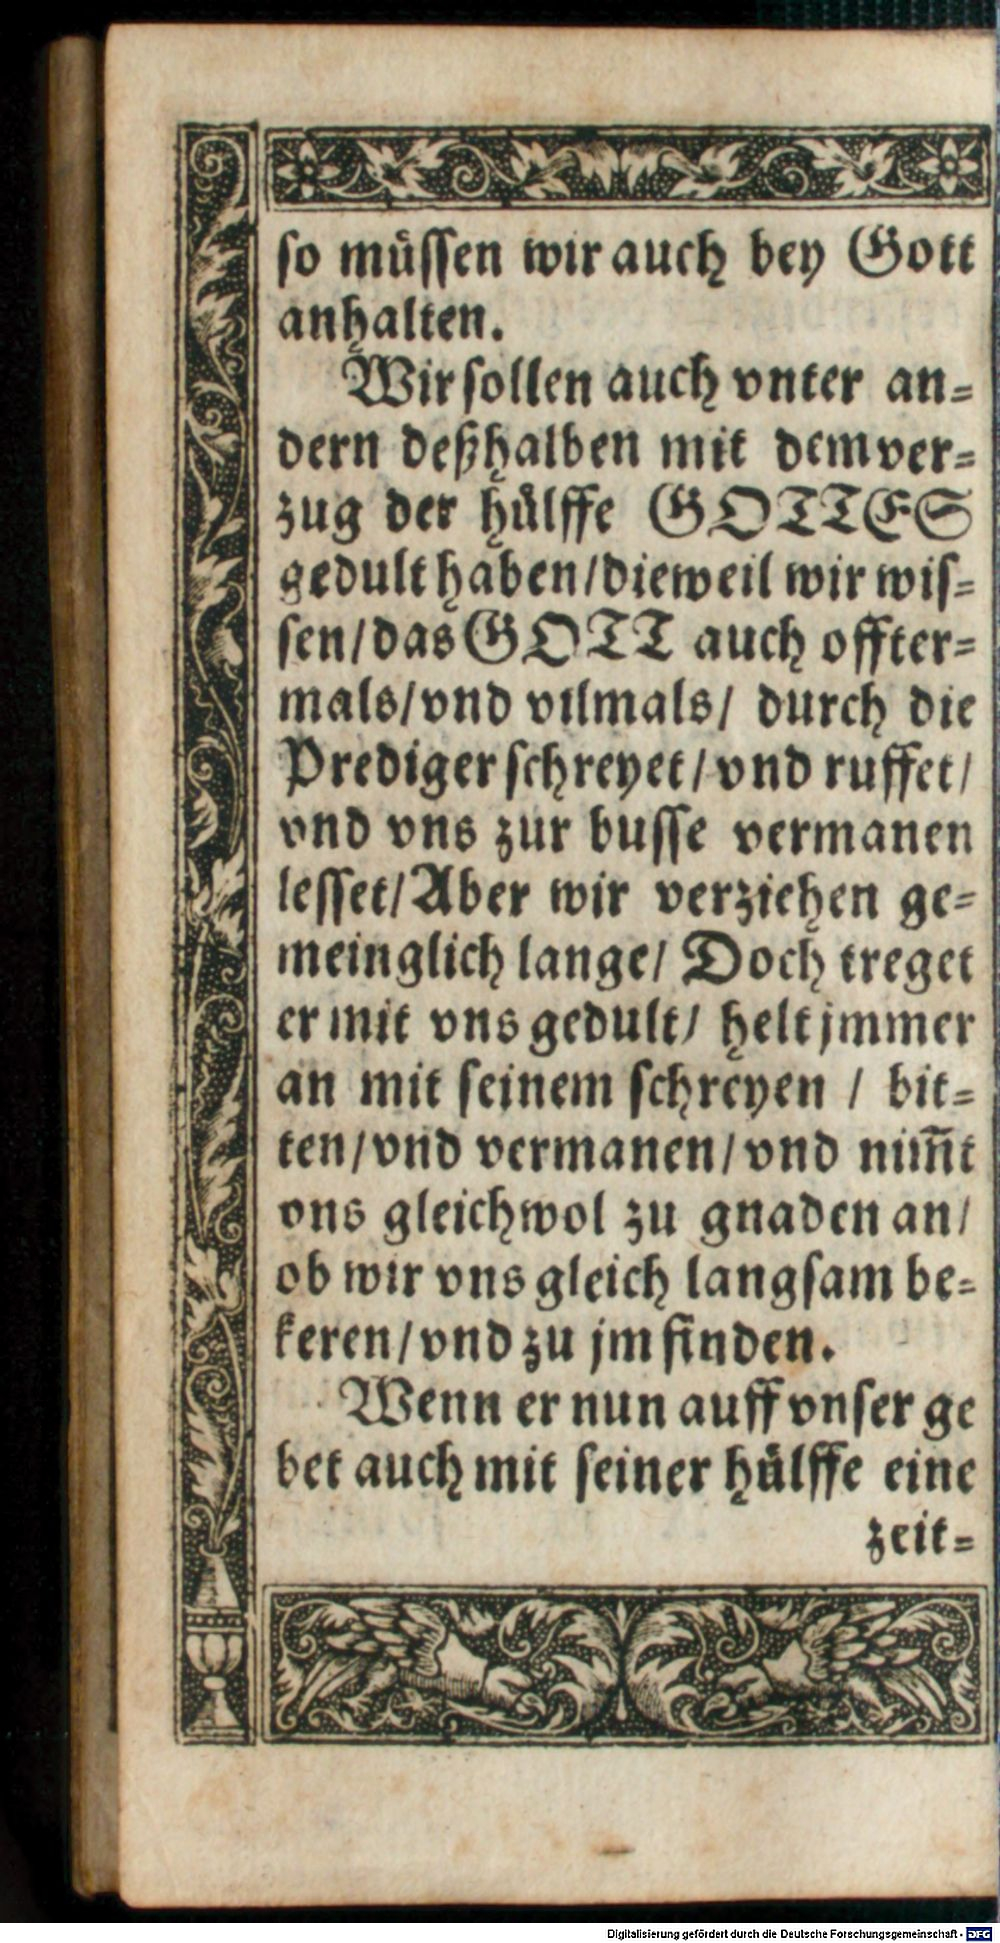 so müssen wir auch bey Gott
anhalten.
Wir sollen auch vnter an=
dern deßhalben mit dem ver=
zug der hülffe GOTTES
gedult haben/dieweil wir wis=
sen/das GOTT auch offter=
mals/vnd vilmals/ durch die
Prediger schreyet/vnd ruffet/
vnd vns zur busse vermanen
lesset/Aber wir verziehen ge=
meinglich lange/ Doch treget
er mit vns gedult/ helt jmmer
an mit seinem schreyen / bit=
ten/vnd vermanen/vnd nim̃t
vns gleichwol zu gnaden an/
ob wir vns gleich langsam be=
keren/vnd zu jm finden.
Wenn er nun auff vnser ge
bet auch mit seiner hülffe eine
zeit=
Digitalisierung gefördert durch die Deutsche Forschungsgemeinschaft - DFG